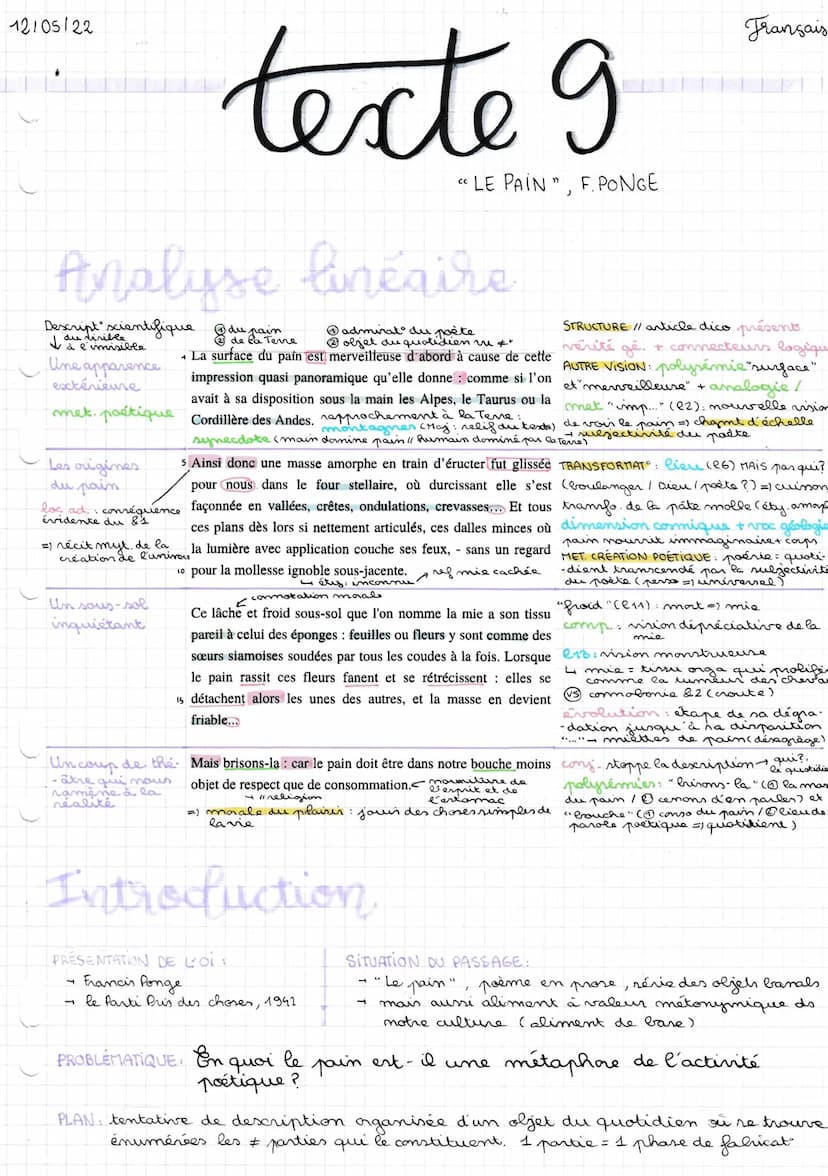 12/05/22
Français
texte 9
"LE PAIN", F. PONGE
Analyse linéaire
Descript° scientifique
du visible
↓ à l'invisible
① du pain
② de la Terre
① admirat° du poète
② objet du quotidien vu ≠
Une apparence
extérieure
met. poétique
La surface du pain est merveilleuse d'abord à cause de cette
impression quasi panoramique qu'elle donne : comme si l'on
avait à sa disposition sous la main les Alpes, le Taurus ou la
Cordillère des Andes. rapprochement à la Terre :
montagnes (Maj : relief du texte)
synecdote (main domine pain // humain dominé par la Terre)
STRUCTURE // article dico présent
vérité gé. + connecteurs logique
AUTRE VISION : polysémie "surface"
et "merveilleuse" + analogie /
met "imp..." (l2) : nouvelle vision
de voir le pain => chgmt d'échelle
→ subjectivité du poète
Les origines
du pain
loc ad. : conséquence
évidente du §1
=> récit myt. de la
création de l'univers
5 Ainsi donc une masse amorphe en train d'éructer fut glissée
pour nous dans le four stellaire, où durcissant elle s'est
façonnée en vallées, crêtes, ondulations, crevasses... Et tous
ces plans dès lors si nettement articulés, ces dalles minces où
la lumière avec application couche ses feux, - sans un regard
10 pour la mollesse ignoble sous-jacente.
↳ éty. inconnu
ref mie cachée
TRANSFORMAT° : lieu (l6) MAIS par qui?
(boulanger / Dieu / poète ?) => cuisson
transfo. de la pâte molle (éty. amorp
dimension cosmique + voc géologie
pain nourrit immaginaire + corps
MET. CRÉATION POÉTIQUE : poésie = quoti-
-dient transcendé par la subjectivité
du poète (perso => universel)
Un sous-sol
inquiétant
connotation morale
Ce lâche et froid sous-sol que l'on nomme la mie a son tissu
pareil à celui des éponges : feuilles ou fleurs y sont comme des
sœurs siamoises soudées par tous les coudes à la fois. Lorsque
le pain rassit ces fleurs fanent et se rétrécissent : elles se
15 détachent alors les unes des autres, et la masse en devient
friable...
"froid" (l11) : mort => mie
comp : vision dépréciative de la
mie
l13 : vision monstrueuse
↳ mie = tissu orga qui prolifè
comme la tumeur des
VS
évolution : étape de sa dégra-
-dation jusqu'à sa disparition
"..." → miettes de pain (désagrège)
Un coup de thé-
-âtre qui nous
ramène à la
réalité
Mais brisons-la : car le pain doit être dans notre bouche moins
objet de respect que de consommation. ← nourriture de
l'esprit et de
l'estomac
→ // religion
=> morale du plaisir : jouir des choses simples de
la vie
conj. stoppe la description → qui?,
le quotidie
polysémies : "brisons-la" (① la mas
du pain / ② cessons d'en parler) et
"bouche" (① conso du pain / ② lieu de
parole poétique => quotidient)
Introduction
PRÉSENTATION DE L'OI :
→ Francis Ponge
→ Le Parti Pris des choses, 1942
SITUATION DU PASSAGE :
→ "Le pain", poème en prose, série des objets banals
→ mais aussi aliment à valeur métonymique ds
notre culture (aliment de base)
PROBLÉMATIQUE : En quoi le pain est-il une métaphore de l'activité
poétique ?
PLAN : tentative de description organisée d'un objet du quotidien où se trouve
énumérées les ≠ parties qui le constituent. 1 partie = 1 phase de fabricat°